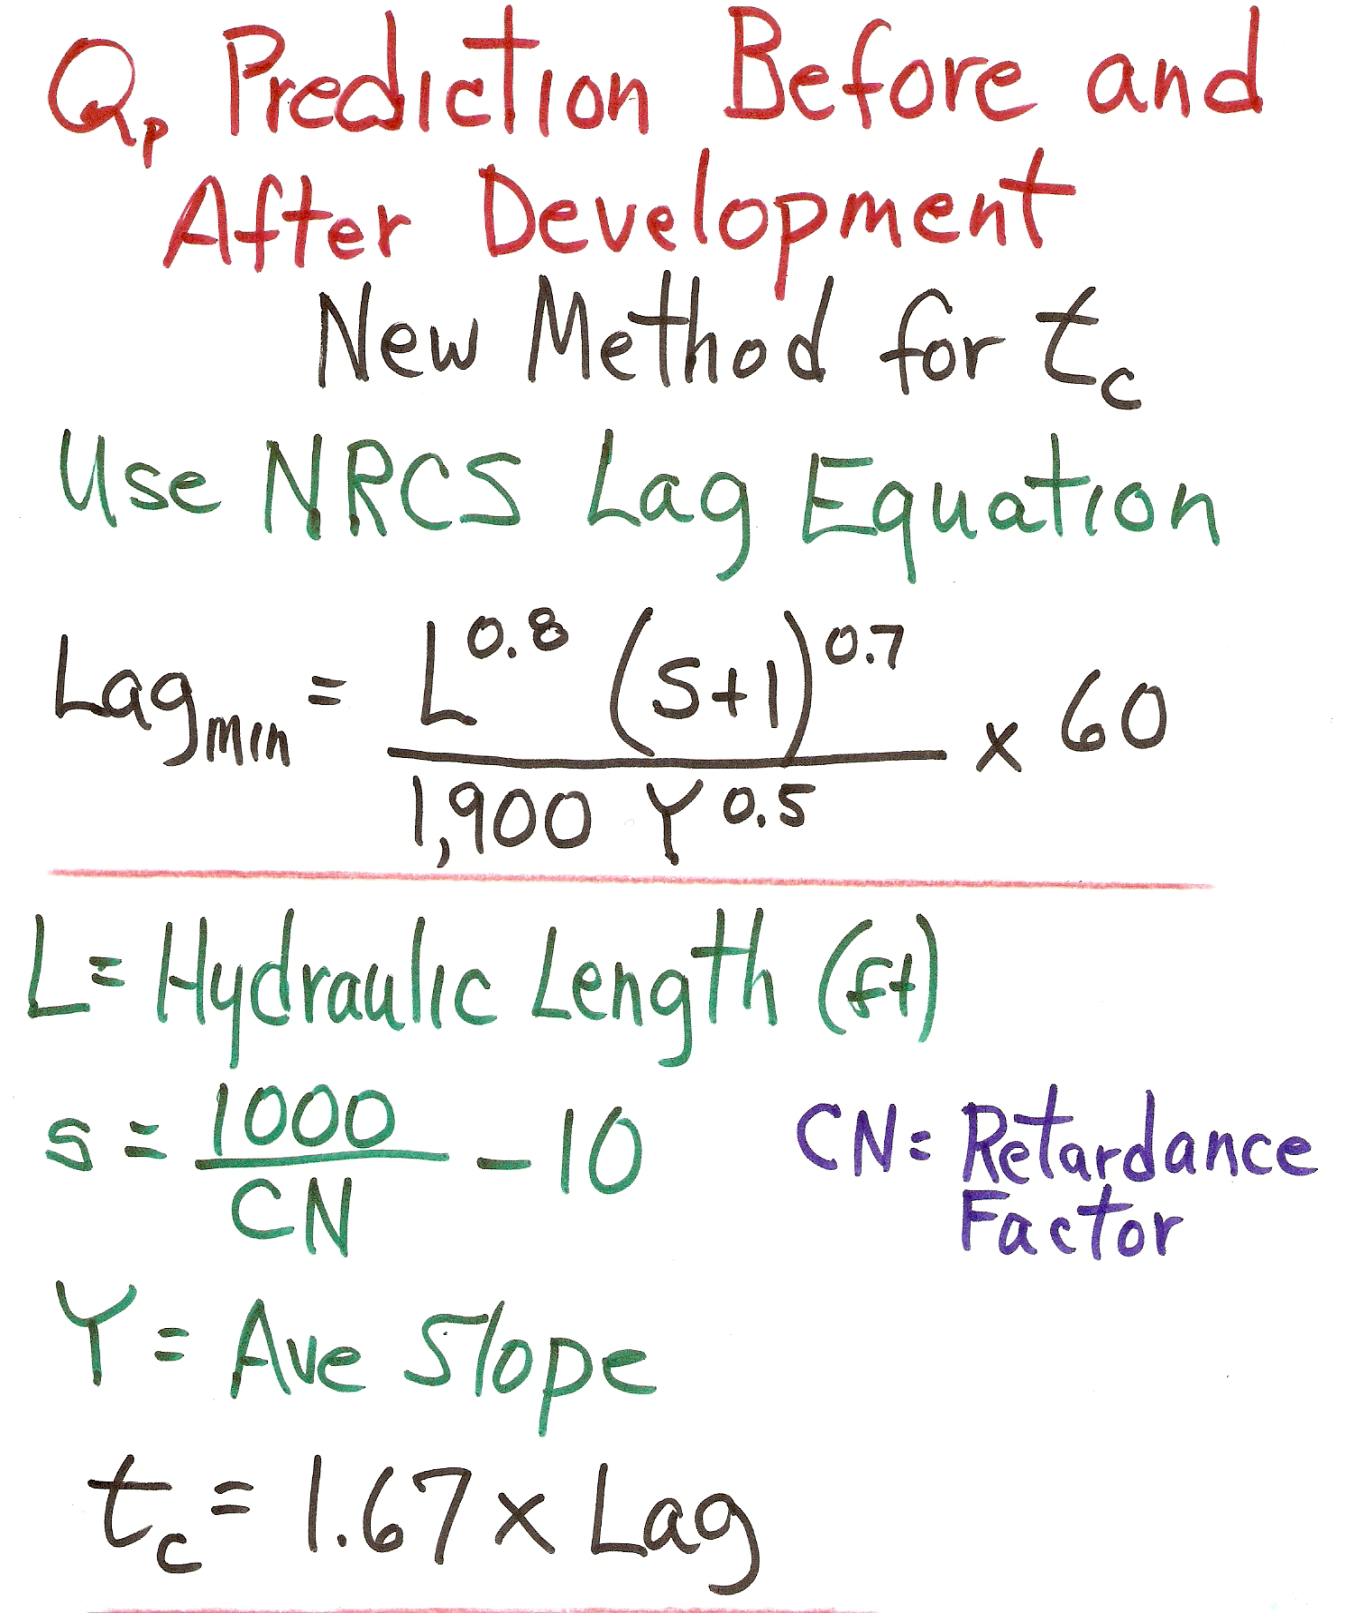 Qp Prediction Before and
After Development
New Method for tc
Use NRCS Lag Equation
Lag min = L^0.8 (S+1)^0.7 / 1,900 Y^0.5 x 60
L = Hydraulic Length (ft)
S = 1000 / CN - 10
CN = Retardance
Factor
Y = Ave Slope
tc = 1.67 x Lag